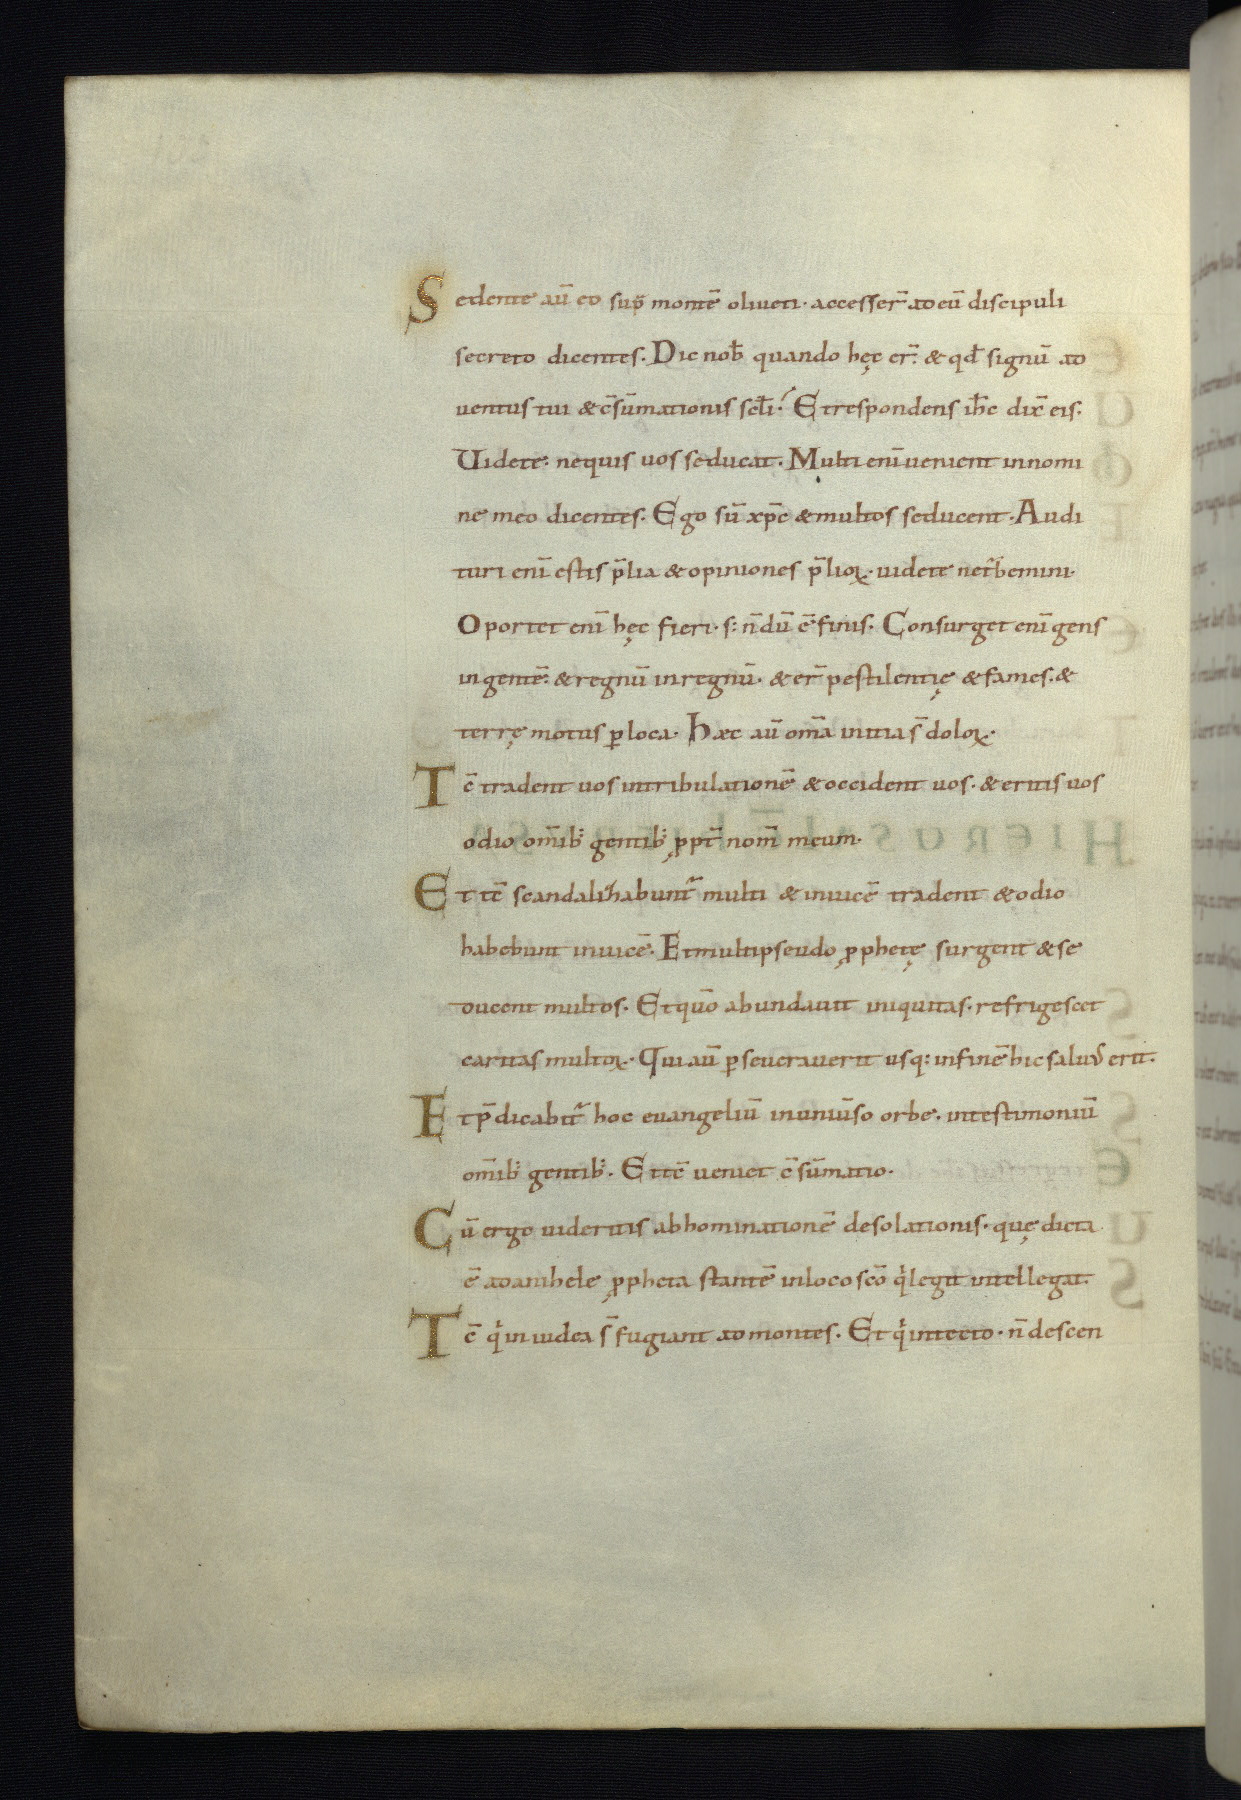 Sedente aū eo sup̄ montē oliueti· accesser̄ ad eū discipuli
secreto dicentes· Dic nob̄ quando hęc er̄: & qd̄ signū ad
uentus tui & c̄sūmationis sc̄li·́ Et respondens ih̄c dix̄ eis·
Uidete: nequis uos seducat· Multi eni uenient in nomi
ne meo dicentes· Ego sū xp̄c & multos seducent· Audi
turi enī estis p̄lia & opiniones p̄lioꝝ· uidete net̄bemini·
Oportet enī hęc fieri· s: n̄dū ē finis· Consurget enī gens
in gentē: & regnū in regnū· & er̄ pestilentię & fames· &
terrę motus ꝑ loca· Haec aū om̄a initia s̄ doloꝝ·
Tc̄ tradent uos in tribulationē & occident uos· & eritis uos
odio om̄ib: gentib: ꝓpt̄ nom̄ meum·
Et tc̄ scandalizabunt̄ multi & inuicē tradent & odio
habebunt inuicē· Et multi pseudo ꝓphetę surgent & se
ducent multos· Et quō abundauit iniquitas· refrigescet
caritas multoꝝ· Qui aū ꝑseuerauerit usq: in finē hic saluꝰ erit·
Et p̄dicabit̄ hoc euangeliū in uniūso orbe· in testimoniū
om̄ib: gentib:· Et tc̄ ueniet c̄sūmatio·
Cū ergo uideritis abhominationē desolationis· quę dicta
ē a danihele ꝓpheta stantē in loco sc̄o qͥ legit intellegat·
Tc̄ qͥ in iudea s̄ fugiant ad montes· Et qͥ in tecto· n̄ descen